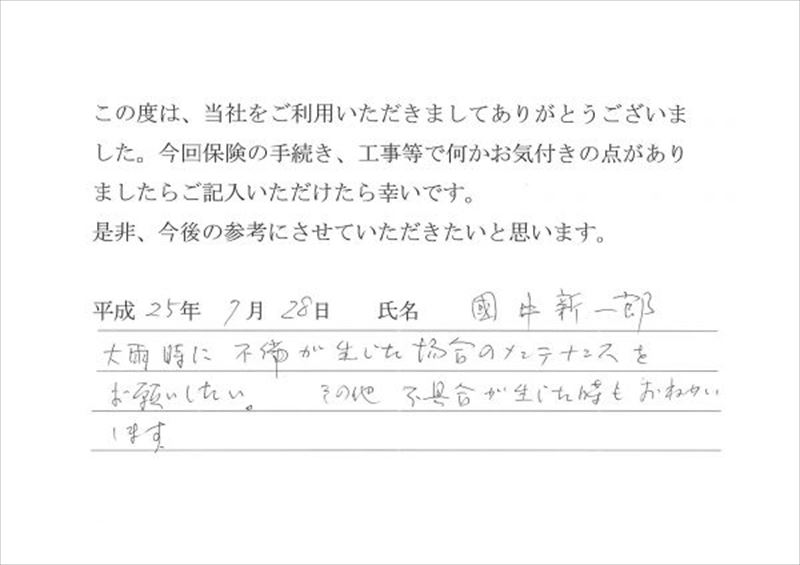 この度は、当社をご利用いただきましてありがとうございま
した。今回保険の手続き、工事等で何かお気付きの点があり
ましたらご記入いただけたら幸いです。
是非、今後の参考にさせていただきたいと思います。
平成 25年 7月 28日 氏名 國中新一郎
大雨時に不備が生じた場合のメンテナンスを
お願いしたい。 その他 不具合が生じた時もおねがい
します